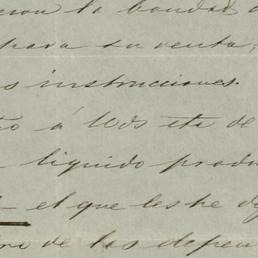 la bondad
para su venta,
instrucciones.
á Vds esta de
liquido produ
el que les he d
de los depen